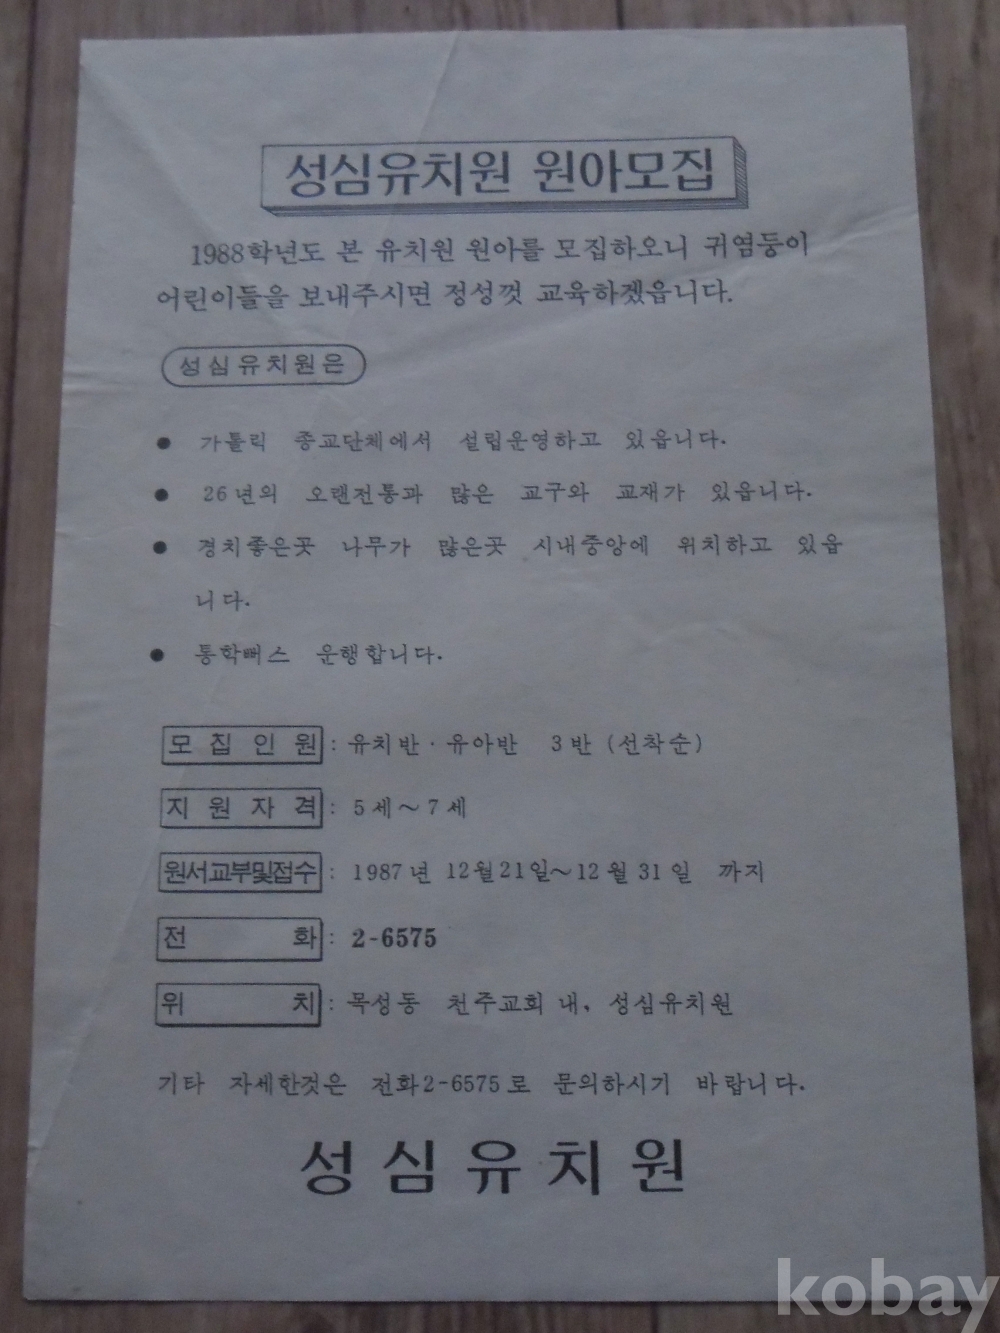 성심유치원 원아모집
1988학년도 본 유치원 원아를 모집하오니 귀염둥이
어린이들을 보내주시면 정성껏 교육하겠읍니다.
성심유치원은
● 가톨릭 종교단체에서 설립운영하고 있읍니다.
● 26년의 오랜전통과 많은 교구와 교재가 있읍니다.
● 경치좋은곳 나무가 많은곳 시내중앙에 위치하고 있읍
니다.
● 통학뻐스 운행합니다.
모집인원 : 유치반·유아반 3반 (선착순)
지원자격 : 5세~7세
원서교부및접수 : 1987년 12월21일~12월31일 까지
전화 : 2-6575
위치 : 목성동 천주교회내, 성심유치원
기타 자세한것은 전화2-6575로 문의하시기 바랍니다.
성심유치원
kobay